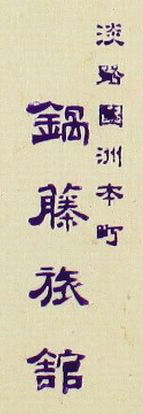 淡路國洲本町
鍋藤旅舘